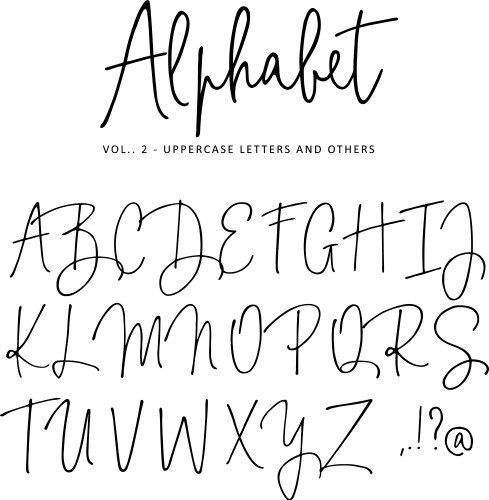 Alphabet
VOL.. 2 - UPPERCASE LETTERS AND OTHERS
A B C D E F G H I J
K L M N O P Q R S
T U V W X Y Z , . ! ? @